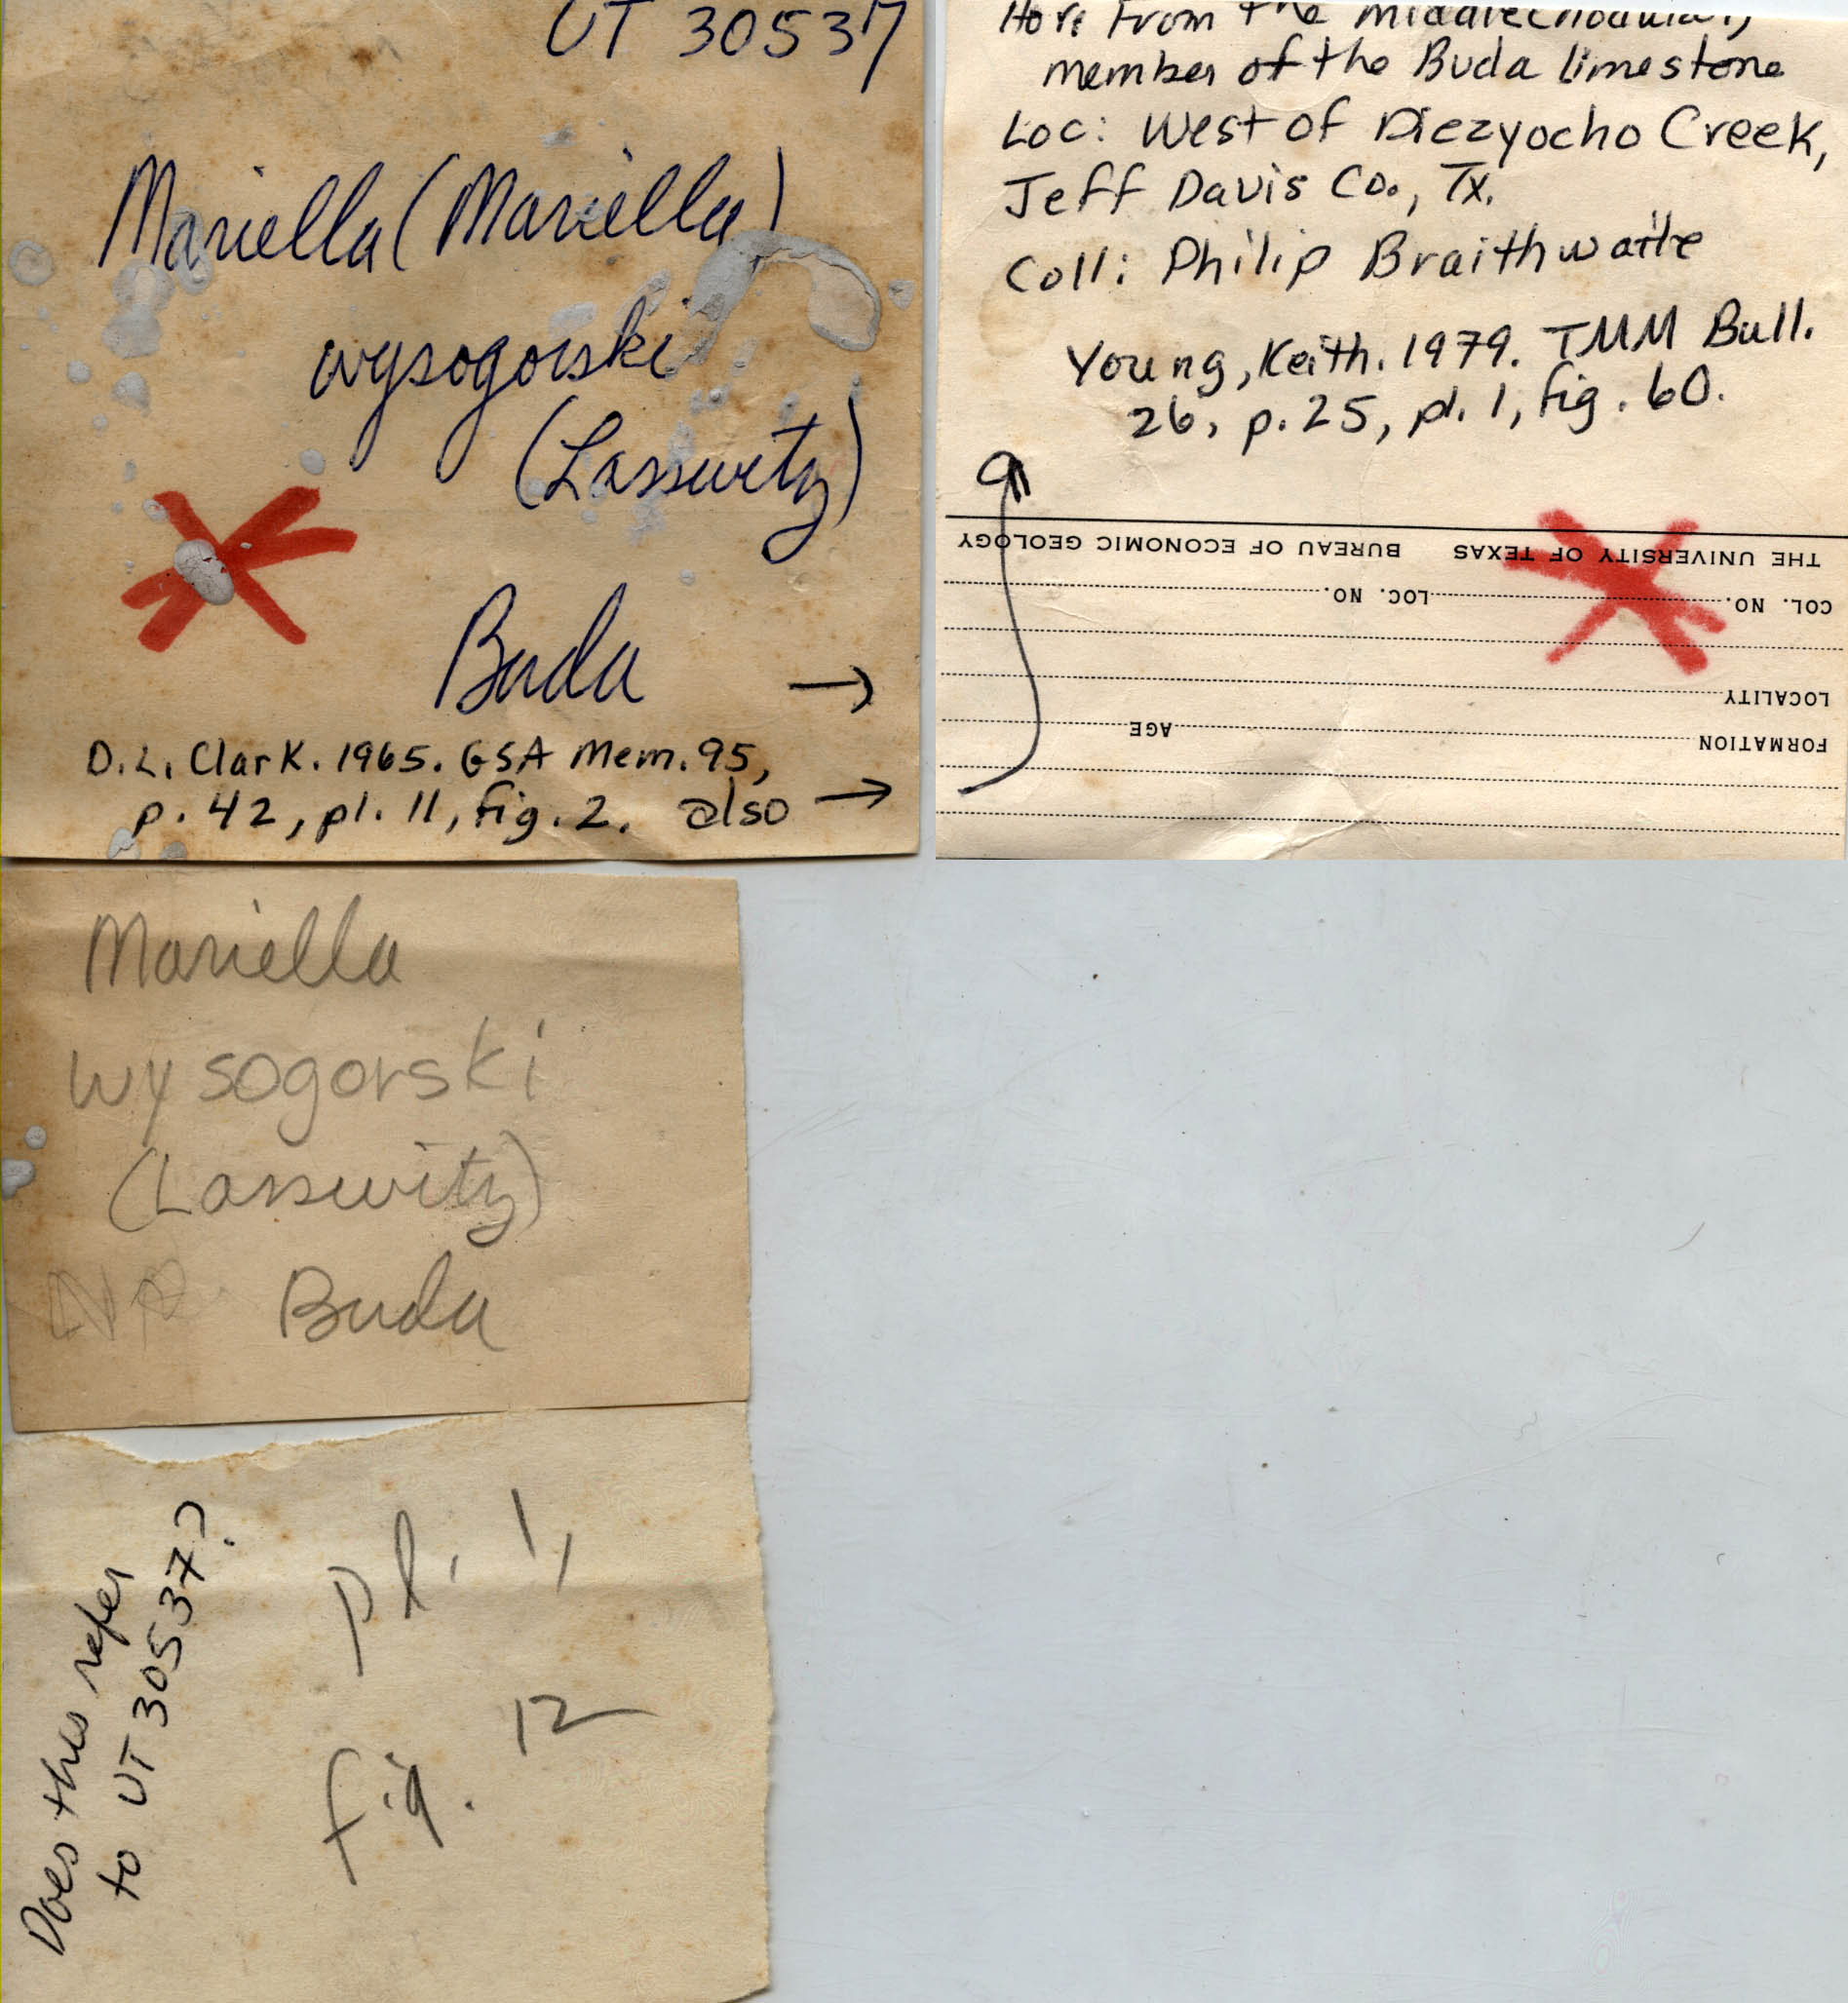 UT 30537
Mariella (Mariella)
wysogorski
(Lasswitz)
Buda →
D.L. Clark. 1965. GSA Mem. 95,
p. 42, pl. 11, fig. 2. also →
Hori From the middle (nodular)
member of the Buda limestone
Loc: West of Diezyocho Creek,
Jeff Davis Co., Tx.
Coll: Philip Braithwaite
Young, Keith. 1979. TMM Bull.
26, p. 25, pl. 1, fig. 60.
THE UNIVERSITY OF TEXAS BUREAU OF ECONOMIC GEOLOGY
COL. NO. LOC. NO.
LOCALITY
FORMATION AGE
Mariella
wysogorski
(Lasswitz)
Buda
Does this refer
to UT 30537?
pl. 1,
fig. 12